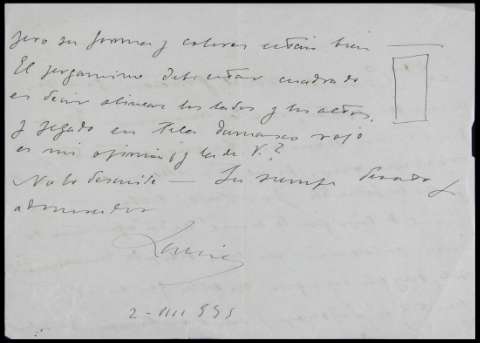 pero su forma y colores están bien
El pergamino debe estar cuadrado
es decir alinear los lados y los altos,
y pegado en tela damasco rojo
es mi opinión ¿y la de V.?
No lo descuide — Su siempre devoto y
admirador
2-VIII 995